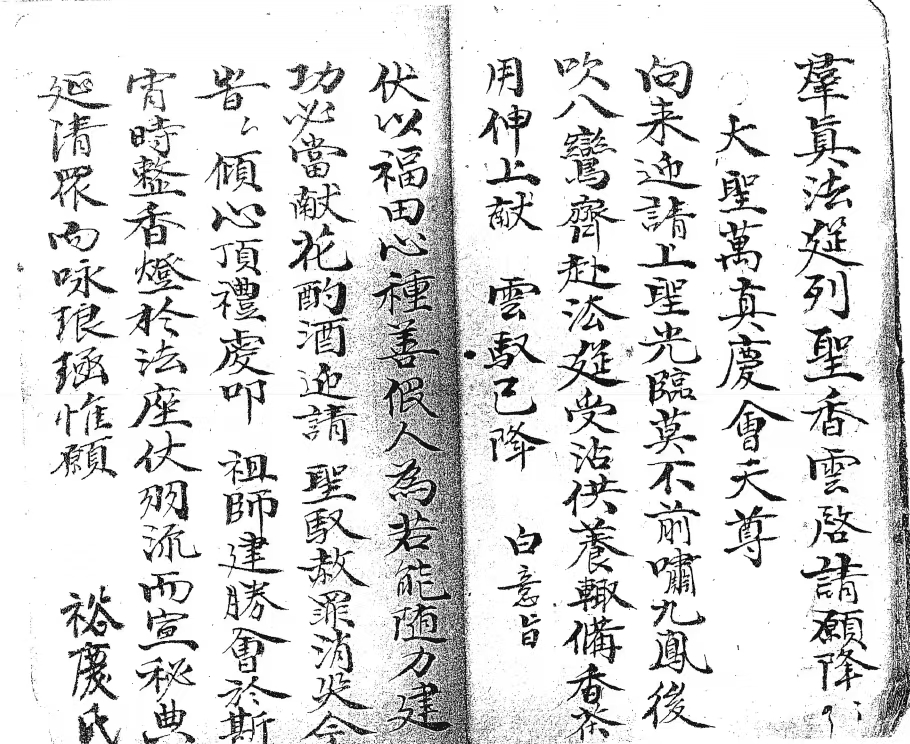 羣真法筵列聖香雲啓請願降
大聖萬真慶會天尊
向来迎請上聖光臨莫不前嘯九鳳後
吹八鸞齊赴法筵受沾供養輙備香茶
用伸上献 雲馭已降 白意旨
伏以福田心種善假人為若能随力建
功必當献花酌酒迎請 聖馭赦罪消災今
傾心頂禮虔叩 祖師建勝會於斯
宵時整香燈於法座仗羽流而宣秘典
延清眾而咏琅函惟願
裕慶氏